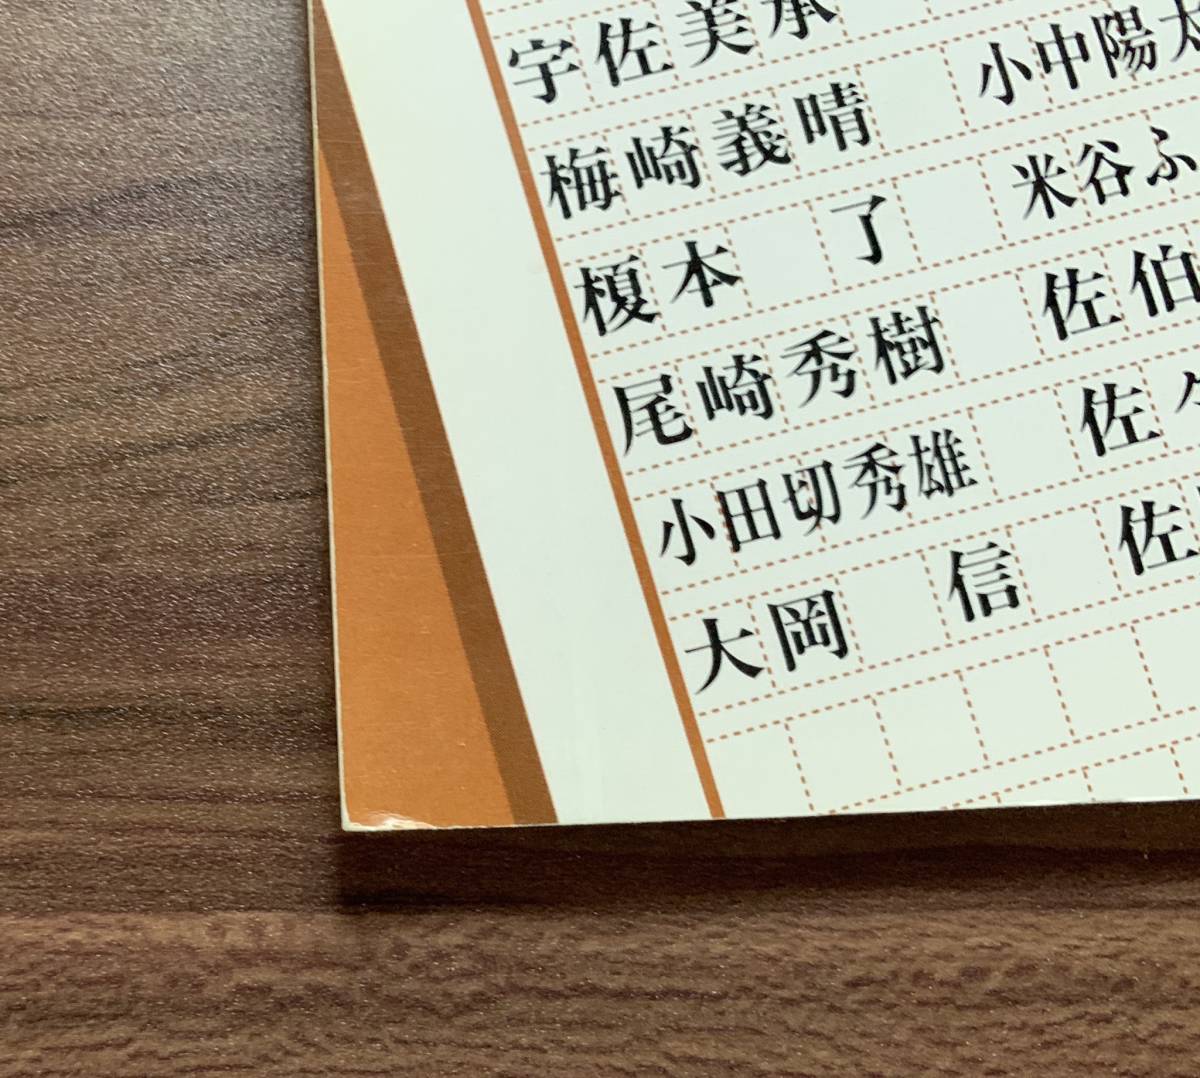 宇佐美承
梅崎義晴
榎本 了
尾崎秀樹
小田切秀雄
大岡 信
小中陽太
米谷ふ
佐伯
佐々
佐